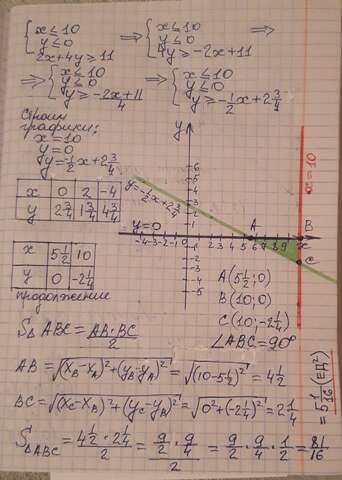 {x ≤ 10 {x ≤ 10
y ≤ 0 ⟹ y ≤ 0 ⟹
2x+4y ≥ 11 4y ≥ -2x+11
⟹ {x ≤ 10 ⟹ {x ≤ 10
y ≤ 0 y ≤ 0
y ≥ (-2x+11)/4 y ≥ -1/2x+2 3/4
Строим
графики:
x=10
y=0
y=-1/2x+2 3/4
x 0 2 -4
y 2 3/4 1 3/4 4 3/4
x 5 1/2 10
y 0 -2 1/4
продолжение
y
6
5
4
3
2
1
y=-1/2x+2 3/4
x=10
y=0
A
B
x
C
-4 -3 -2 -1 0 1 2 3 4 5 6 7 8 9
-1
-2
-3
-4
-5
A(5 1/2; 0)
B(10; 0)
C(10; -2 1/4)
∠ABC=90°
S△ABC = AB·BC/2
AB = √((xB-xA)²+(yB-yA)²) = √((10-5 1/2)²) = 4 1/2
BC = √((xC-xB)²+(yC-yB)²) = √(0²+(-2 1/4)²) = 2 1/4
S△ABC = (4 1/2 · 2 1/4)/2 = (9/2 · 9/4)/2 = 9/2 · 9/4 · 1/2 = 81/16
= 5 1/16 (ЕД²)